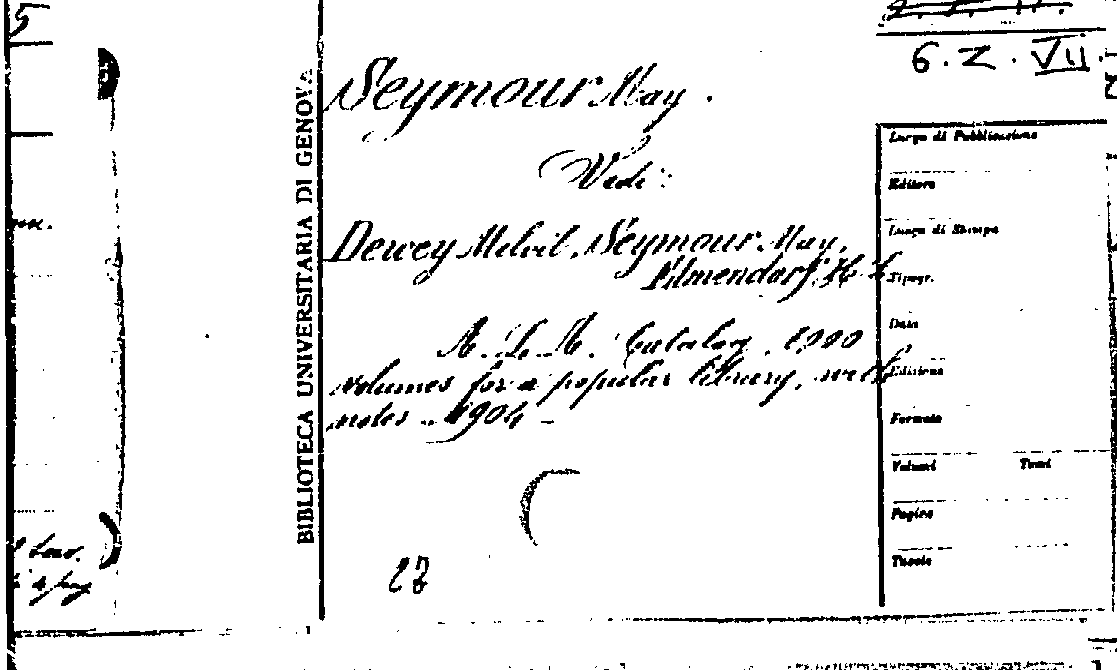 5
6. Z. VII.
BIBLIOTECA UNIVERSITARIA DI GENOVA
Seymour May.
Vedi:
Dewey Melvil, Seymour May,
Elmendorf, H. L.
A. L. A. Catalog,
volumes for a popular library, with
notes - 1904 -
Luogo di Pubblicazione
Editore
Luogo di Stampa
Tipogr.
Data
Edizione
Formato
Volumi Tomi
Pagine
Tavole